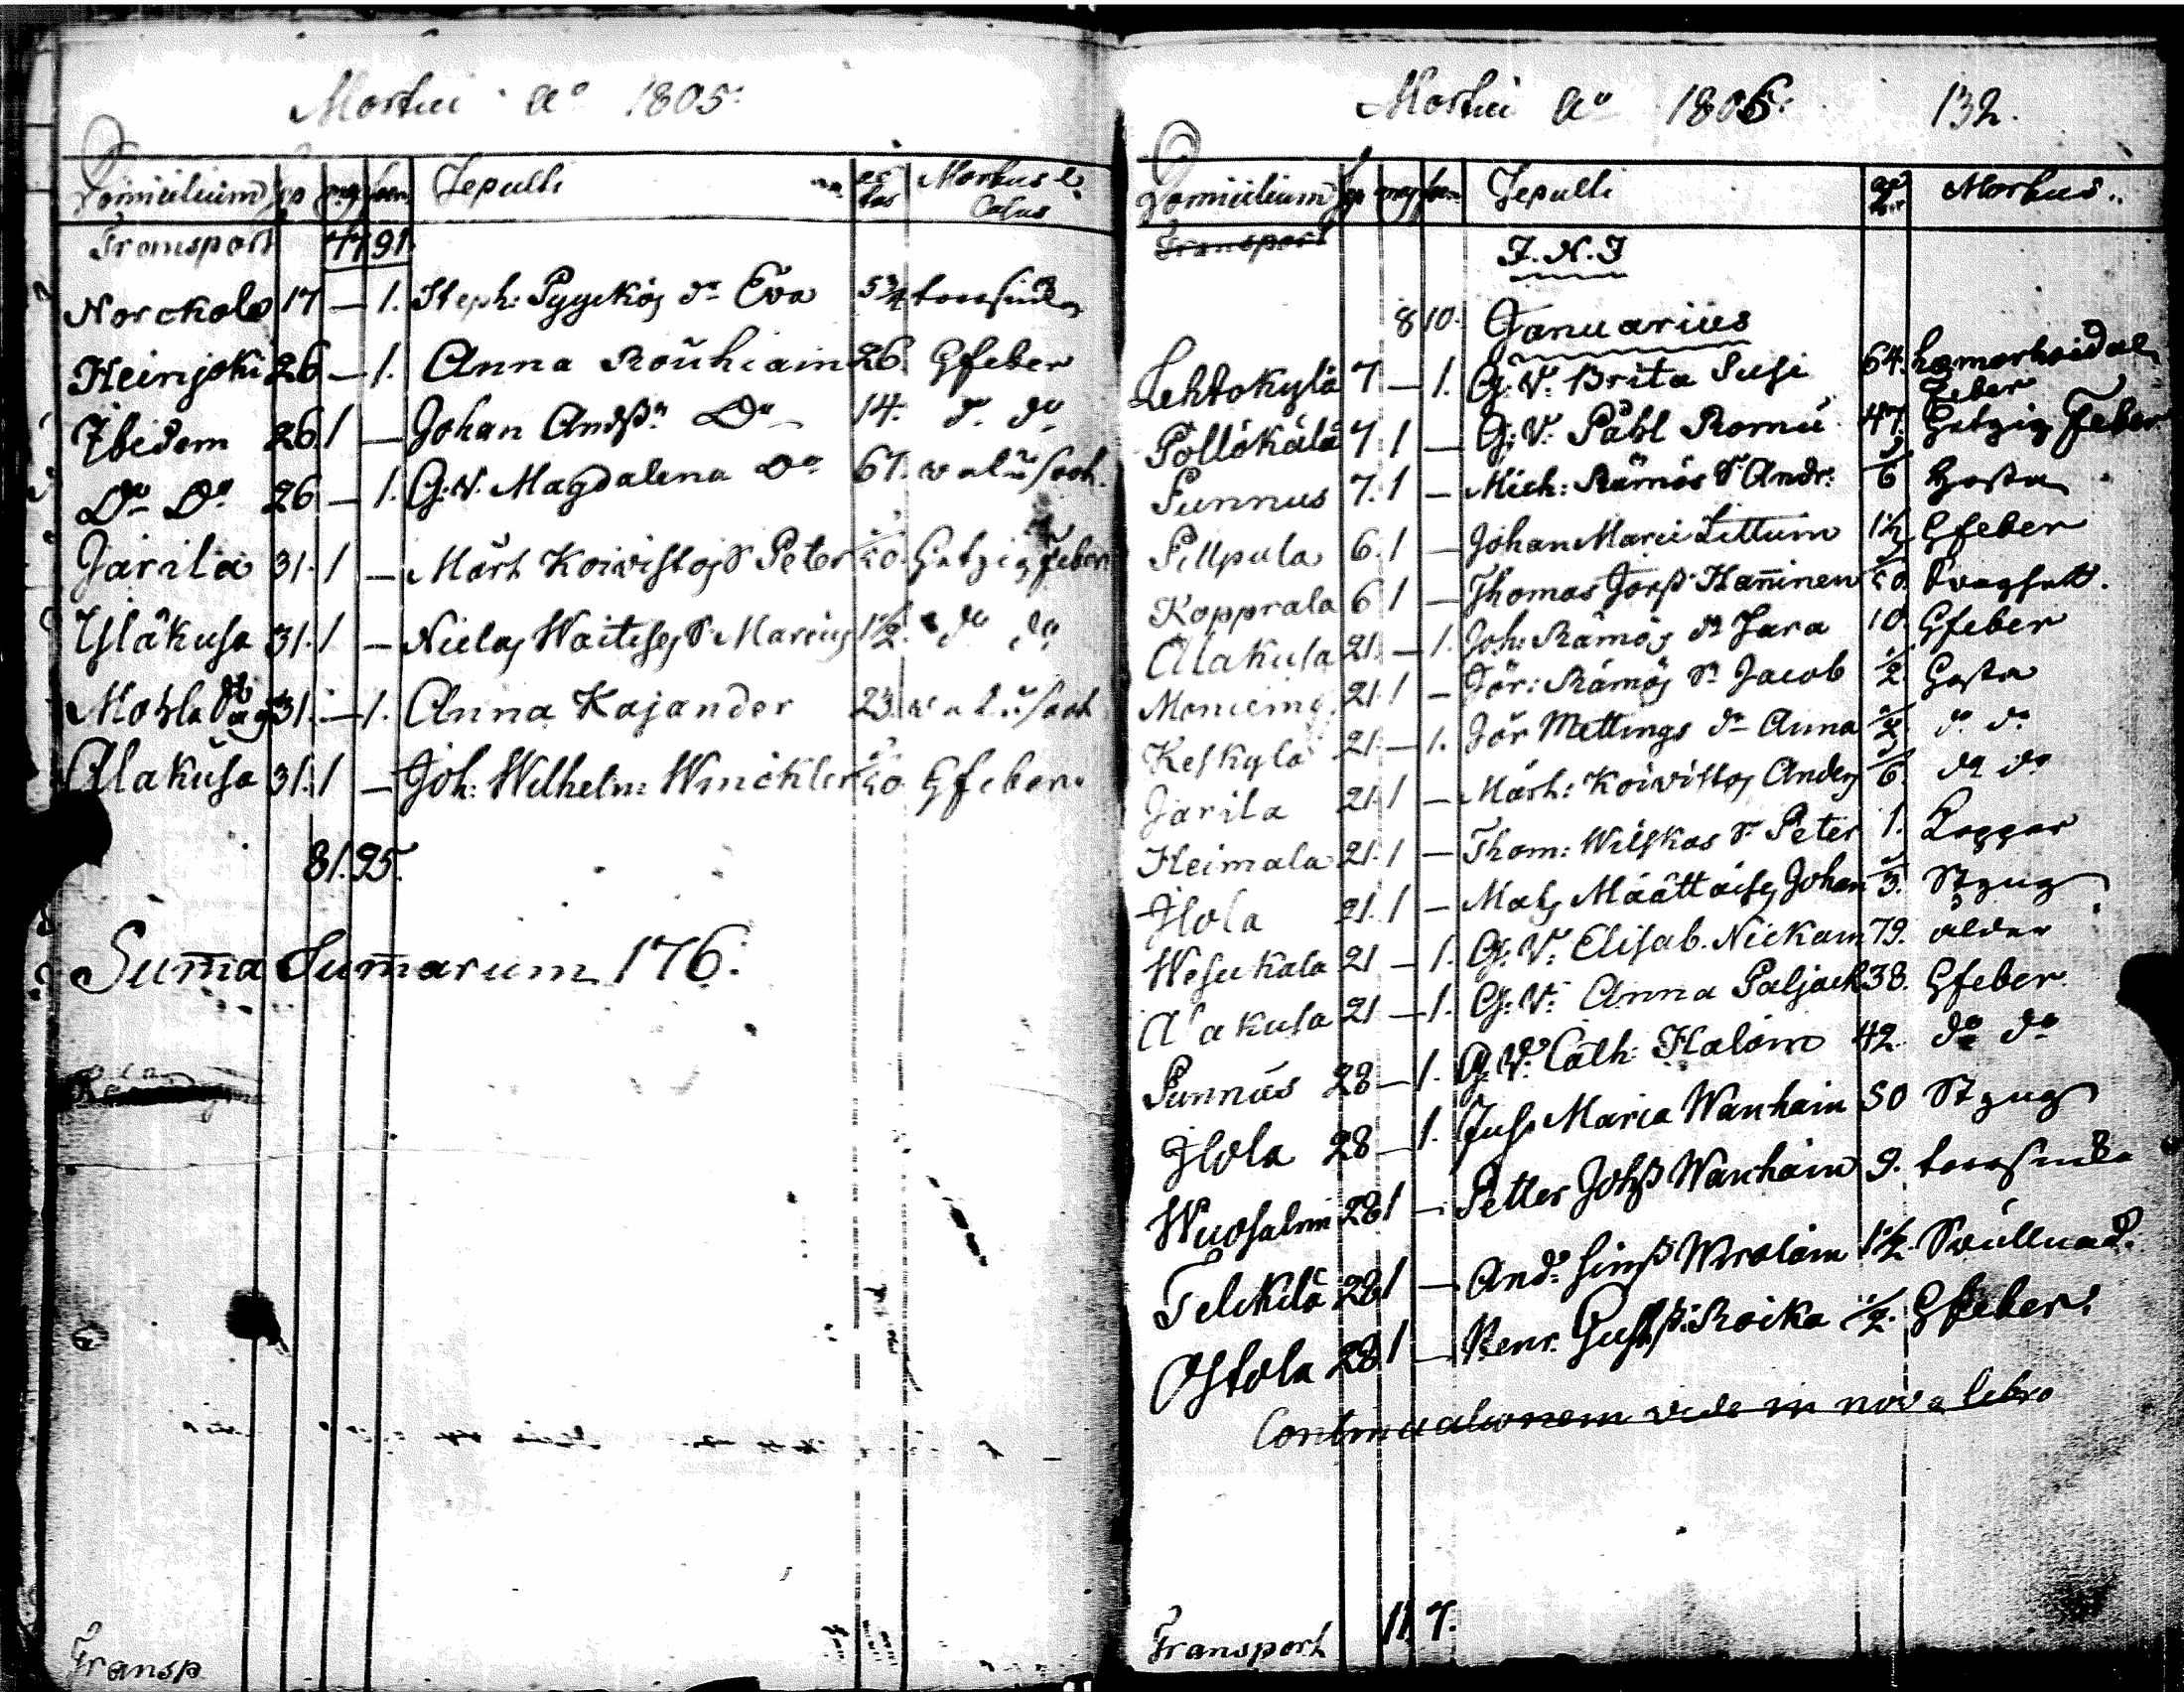 Mortui a:o 1805.
Domicilium Sepulti ætas Morbus l. Casus
Transport 77 91.
Norckola 17 — 1. Steph: Pyyckös dr Eva 5¾
Heinjoki 26 — 1. Anna Rouhiain 26. Gfeber
Ibidem 26. 1 — Johan Andßn Do 14. do do
Do Do 26 — 1. G:V. Magdalena Do 67.
Järilä 31. 1 — Mårt Koivistos S Peter Hetzig feber
Yläkusa 31. 1 — Nielas Waitises S. Marcus 1½. do do
Mohla 31. — 1. Anna Kajander 23.
Alakusa 31. 1 — Joh: Wilhelm: Winckler Gfeber.
81. 95.
Suma Sumarum 176.
Transp
Mortui ao 1806. 132.
Domicilium Sepulti Morbus..
Transport I.N.I
8 10. Januarius
Lehtokylä 7 — 1. G:V: Brita Susi 64. hæmorhoidal
feber
Pöllökälä 7. 1 — G:V: Påhl Romu 47. Hetzig Feber
Punnus 7. 1 — Mich: Rämös S Andr: 6 Hosta
Pillpula 6. 1 — Johan Marci Littum 1½ Gfeber
Kopprala 6 1 — Thomas Jörß Hänninen
Alakusa 21. — 1. Joh: Rämös dr Sara 10. Gfeber
Moncing. 21. 1 — Jör: Rämös S: Jacob 2. Hosta
Keskylä 21. — 1. Jör Mettings dr Anna do do
Järila 21. 1 — Mårt: Koivistos Anders 6. do do
Heimala 21. 1 — Thom: Wilskas S: Peter 1. Koppor
Ilola 21. 1 — Mats Määttäises Johan 3. Styng
Wesukala 21 — 1. G:V: Elisab. Nickam 79. ålder
Alakusa 21 — 1. G:V: Anna Paljack 38. Gfeber.
Punnus 28 — 1. G:V: Cath: Halom 42 do do
Ilola 28 — 1. Maria Wanhain 50 Styng
Wuosalmi 28 1 — Petter Johß Wanhain 9.
Telckilä 28 1 — And: Simß Wirolain 1½. Svullnad.
Ostola 28. 1 — Henr. Roika ½. Gfeber.
Continuationem vide in novo libro
Transport 11. 7.